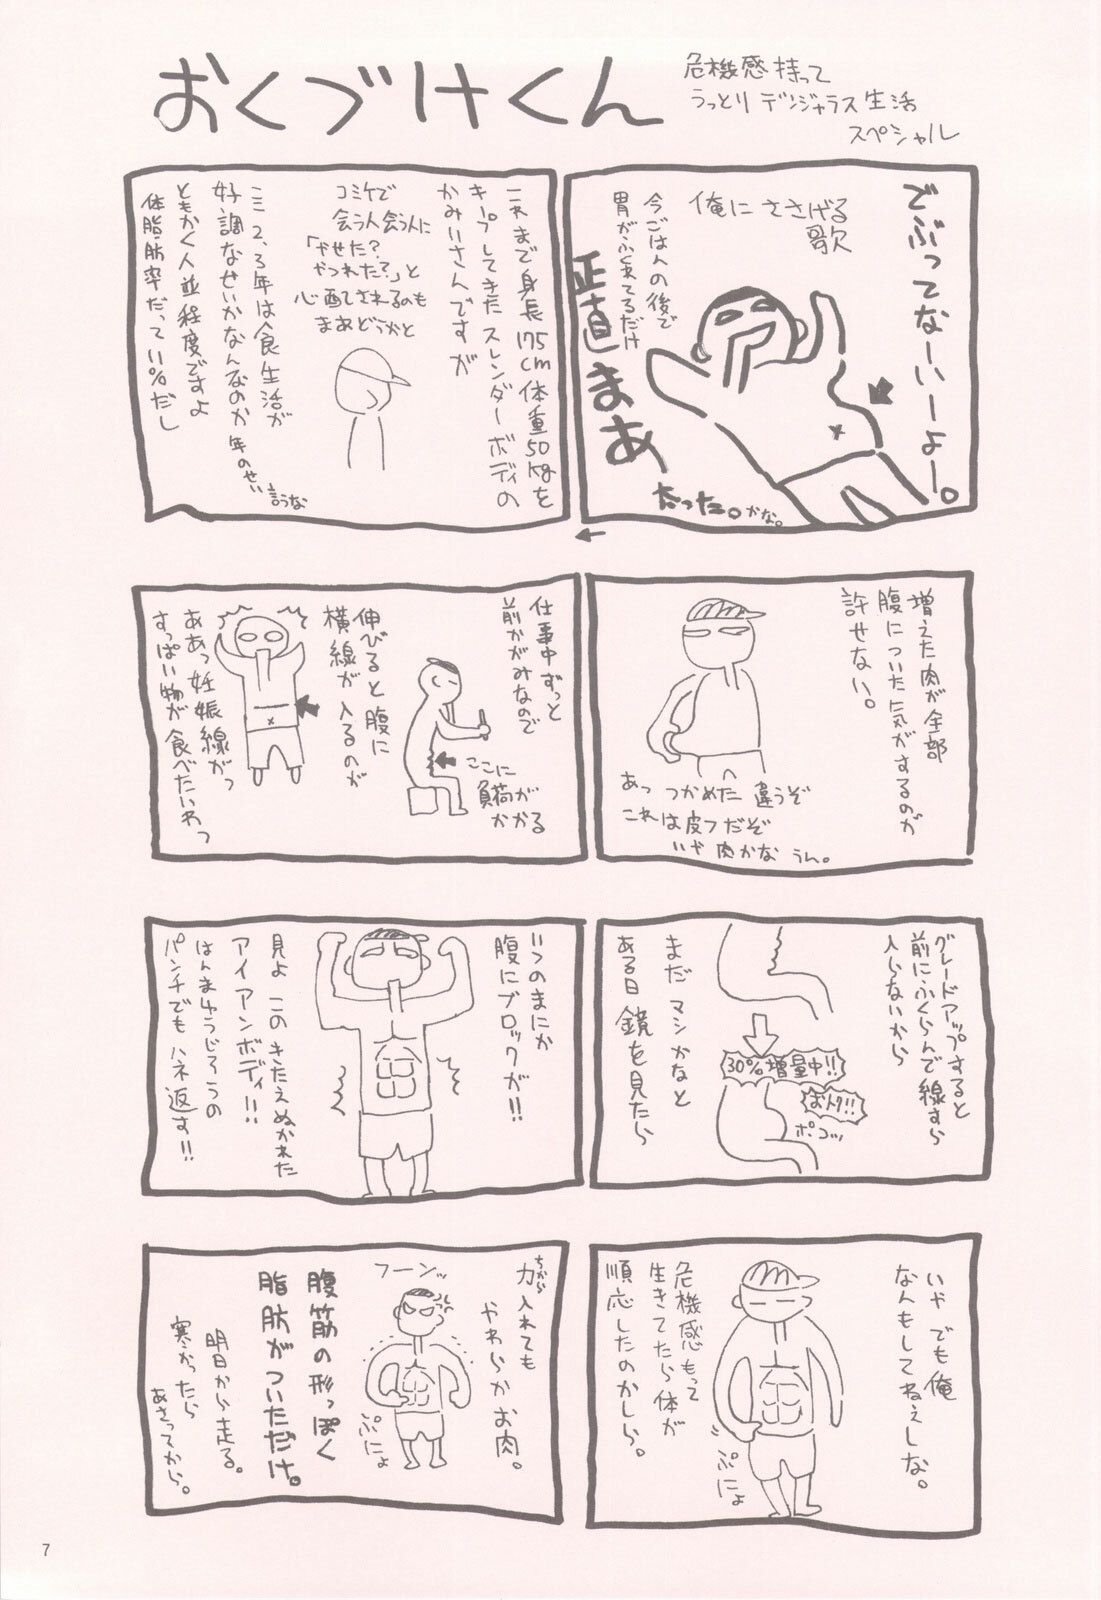 おくづけくん
危機感持って
うっとりデンジャラス生活
スペシャル
でぶってなーいーよー。
俺にささげる
歌
今ごはんの後で
胃がふくれてるだけ
正直まあ
太った。かな。
これまで身長175cm体重50kgを
キープしてきたスレンダーボディの
かみいさんですが
コミケで
会う人会う人に
「やせた?
やつれた?」と
心配されるのも
まあどうかと
ここ2、3年は食生活が
好調なせいかなんなのか年のせい
言うな
ともかく人並程度ですよ
体脂肪率だって11%だし
増えた肉が全部
腹についた気がするのが
許せない。
あっつかめた違うぞ
これは皮フだぞ
いや肉かなうん。
仕事中ずっと
前かがみなので
ここに
負荷が
かかる
伸びると腹に
横線が入るのが
ああっ妊娠線がっ
すっぱい物が食べたいわっ
グレードアップすると
前にふくらんで線すら
入らないから
30%増量中!!
おトク!!
ポコッ
まだマシかなと
ある日鏡を見たら
いつのまにか
腹にブロックが!!
見よこのきたえぬかれた
アイアンボディ!!
はんまゆうじろうの
パンチでもハネ返す!!
いやでも俺
なんもしてねぇしな。
ぷにょ
危機感もって
生きてたら体が
順応したのかしら。
ちから
力入れても
やわらかお肉。
フーンッ
ぷにょ
腹筋の形っぽく
脂肪がついただけ。
明日から走る。
寒かったら
あさってから。
7